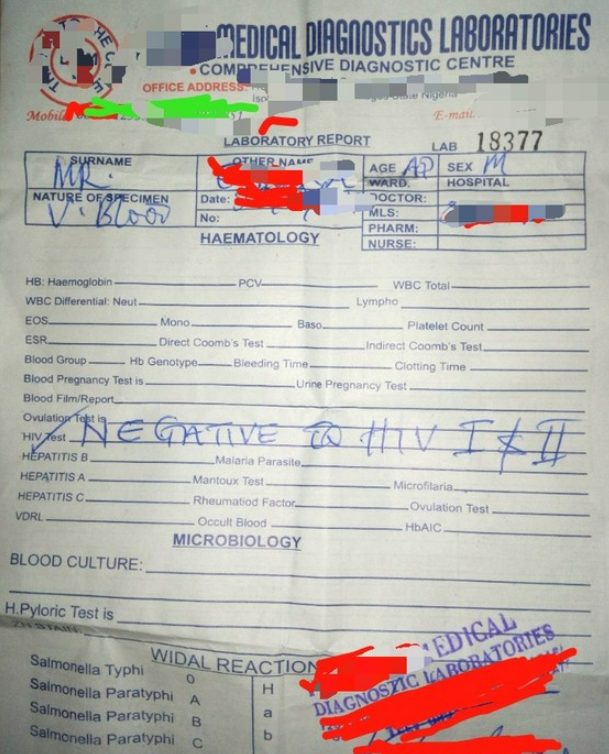 MEDICAL DIAGNOSTICS LABORATORIES
• COMPREHENSIVE DIAGNOSTIC CENTRE
OFFICE ADDRESS:
State Nigeria
Mobile
E-mail
LABORATORY REPORT LAB 18377
SURNAME OTHER NAME AGE AD SEX M
MR. WARD. HOSPITAL
NATURE OF SPECIMEN Date: DOCTOR:
V. Blood No: MLS:
PHARM:
NURSE:
HAEMATOLOGY
HB: Haemoglobin PCV WBC Total
WBC Differential: Neut Lympho
EOS Mono Baso Platelet Count
ESR Direct Coomb's Test Indirect Coomb's Test
Blood Group Hb Genotype Bleeding Time Clotting Time
Blood Pregnancy Test is Urine Pregnancy Test
Blood Film/Report
Ovulation Test is
HIV Test NEGATIVE TO HIV I & II
HEPATITIS B Malaria Parasite
HEPATITIS A Mantoux Test Microfilaria
HEPATITIS C Rheumatiod Factor Ovulation Test
VDRL Occult Blood HbAIC
MICROBIOLOGY
BLOOD CULTURE:
H.Pyloric Test is
ZN STAIN:
WIDAL REACTION
Salmonella Typhi O H
Salmonella Paratyphi A a
Salmonella Paratyphi B b
Salmonella Paratyphi C
MEDICAL
DIAGNOSTIC LABORATORIES